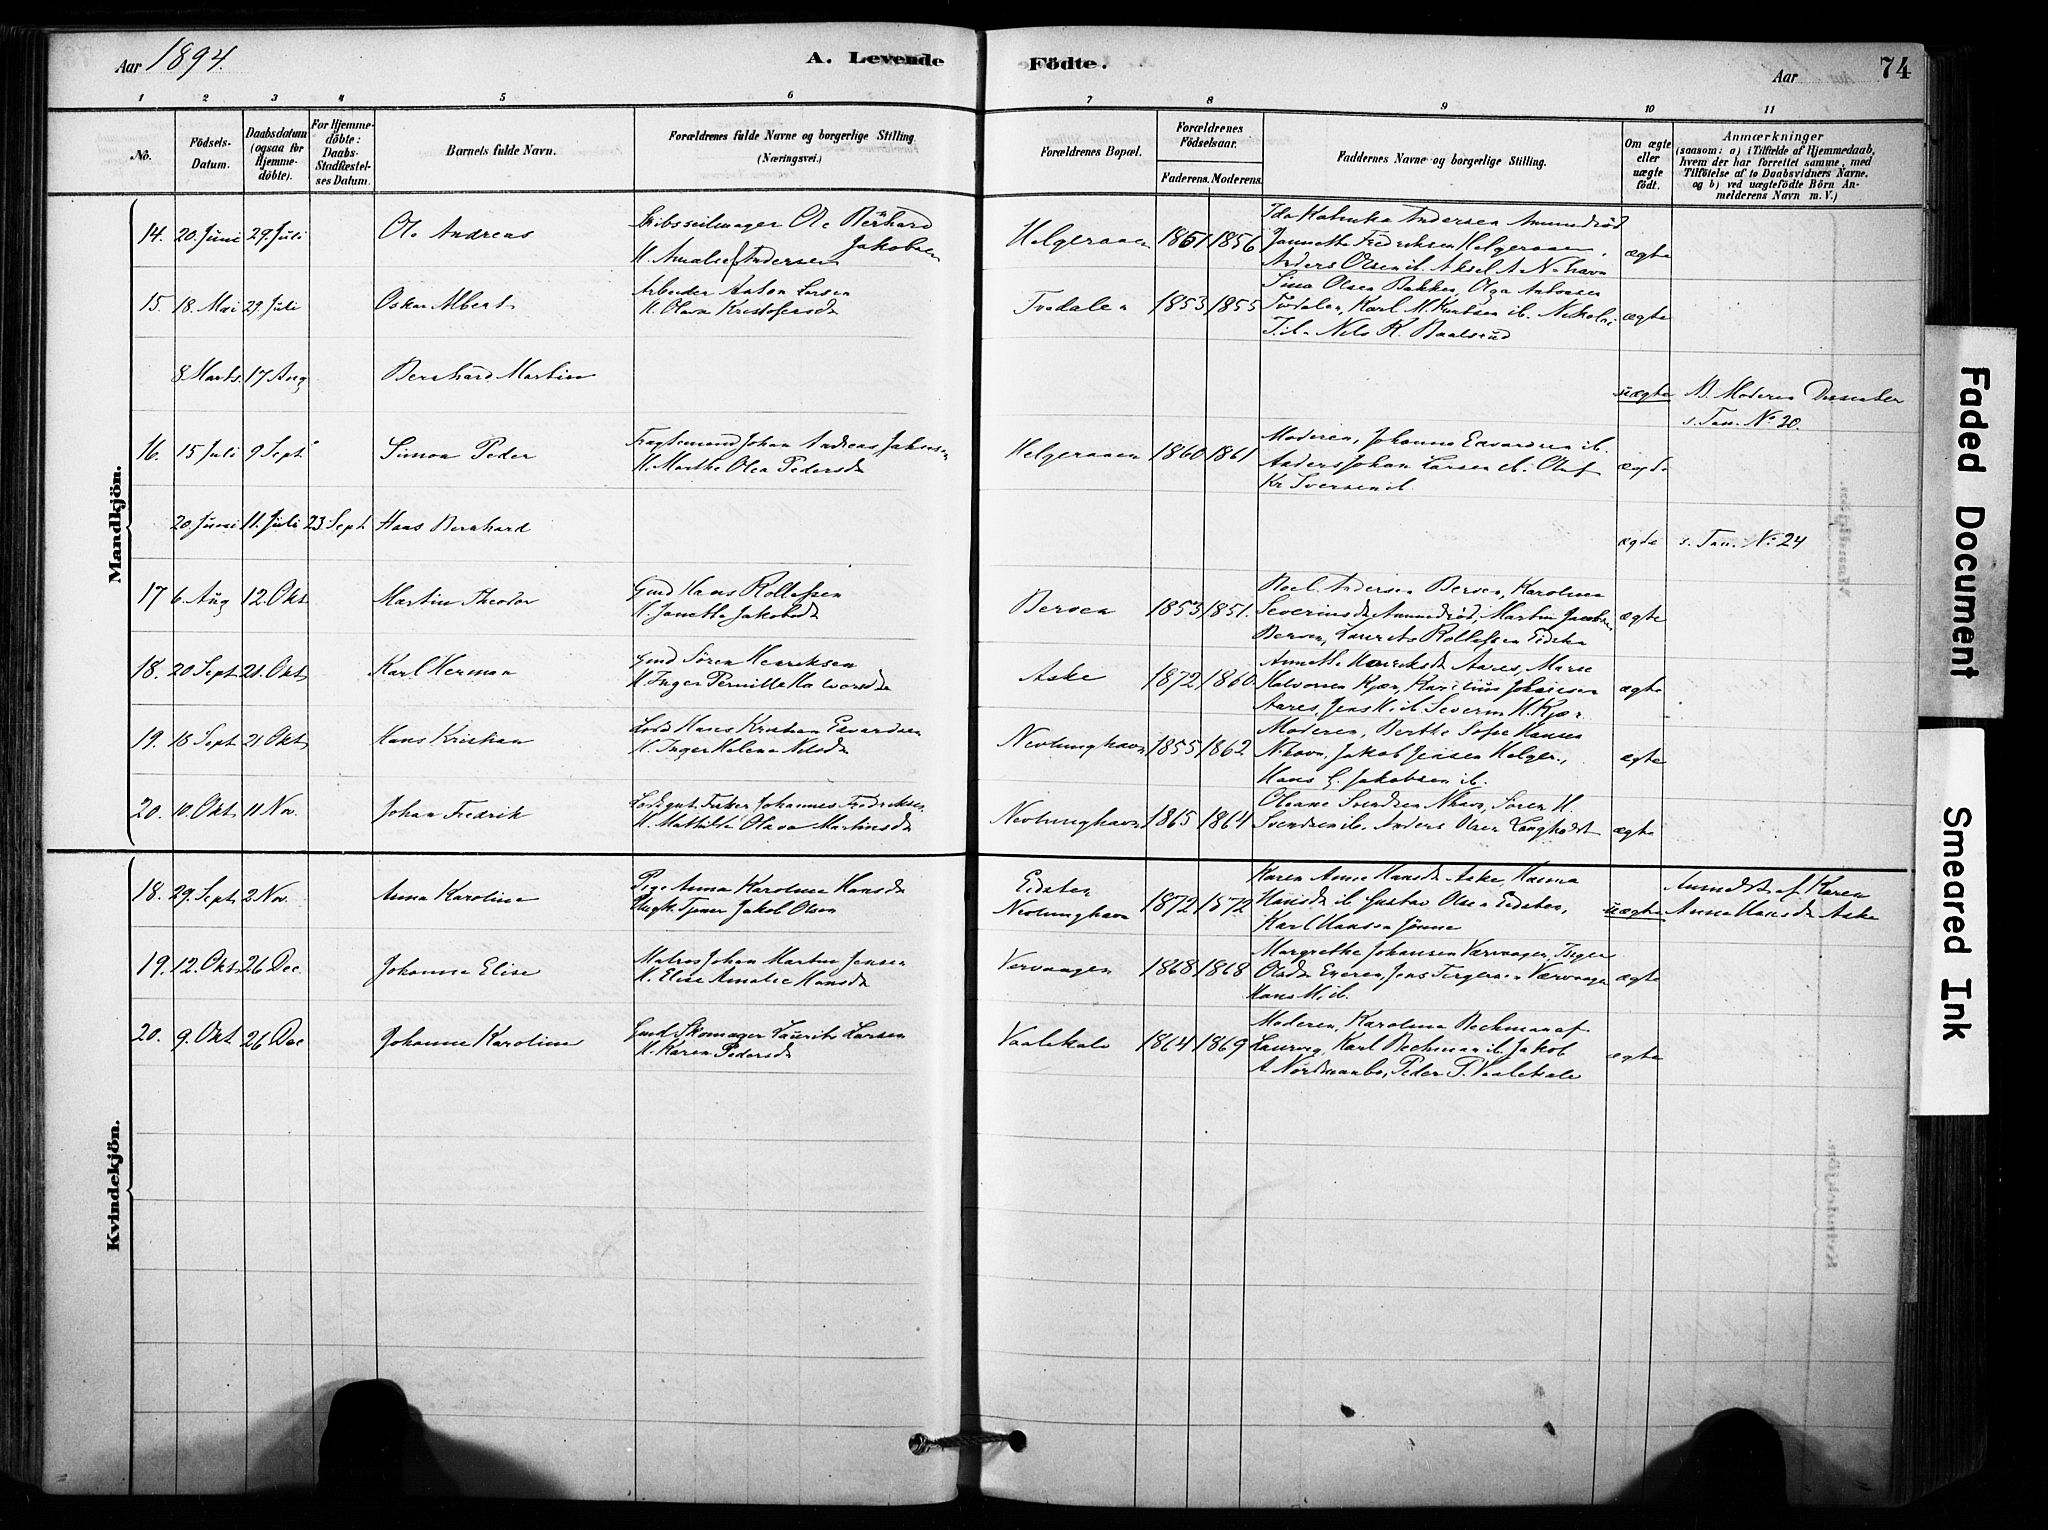 Aar 1894.
A. Levende Födte.
Aar
74
1 2 3 4 5 6 7 8 9 10 11
No.
Födsels-Datum.
Daabsdatum (ogsaa for Hjemme-döbte).
For Hjemme-döbte: Daabs-Stadfæstel-ses Datum.
Barnets fulde Navn.
Forældrenes fulde Navne og borgerlige Stilling. (Næringsvei.)
Forældrenes Bopæl.
Forældrenes Födselsaar.
Faderens. Moderens.
Faddernes Navne og borgerlige Stilling.
Om ægte eller uægte födt.
Anmærkninger
(saasom: a) i Tilfælde af Hjemmedaab, hvem der har forrettet samme, med Tilföielse af to Daabsvidners Navne. og b) ved uægtefödte Börn An-melderens Navn m. V.)
Mandkjön.
14. 20 Juni 29 Juli Ole Andreas
Skibsseilmager Ole Bernhard Jakobsen
H. Amalie Andersen
Helgeraaen 1851 1856
Ida Kathinka Andersen Anundröd
Jannethe Fredriksen Helgeraaen,
Anders Olsen ib. Aksel A N.havn
ægte
15. 18 Mai 29 Juli Oskar Albert
Arbeider Anton Larsen
H. Olava Kristofersdt
Tvedalen 1853 1855
Sina Olsen Bakken, Olga Antonsen
Tvedalen, Karl M. Knutsen ib. Nikolai
Nils K. Baalsrud
ægte
8 Marts 17 Aug Bernhard Martin
uægte
B. Moderen Dissenter
s. Tan. No 20.
16. 15 Juli 9 Sept Simon Peder
Fragtemand Johan Andreas Jakobsen
H. Marthe Olea Pedersdt
Helgeraaen 1860 1861
Moderen, Johanne Edvardsen ib.
Anders Johan Larsen ib. Oluf
Kr Iversen ib.
ægte
20 Juni 11 Juli 23 Sept Hans Bernhard
ægte
s. Tan. No 24
17 6 Aug 12. Okt Martin Theodor
Gmd Hans Rollefsen
H. Janethe Jakobsdt
Berven 1853 1851.
Andersen Berven, Karoline
Severinsdt Anundröd, Martin Jacobsen
Berven, Laurits Rollefsen Eidsten
ægte
18. 20 Sept 21 Okt Karl Herman
Gmd Sören Henriksen
H. Inger Pernille Halvorsdt
Aske 1872 1860
Annethe Henriksdt Aares, Marie
Halvorsen Kjær, Karelius Johnsen
Aares, Jens H. ib. Severin H. Kjær.
ægte
19. 18 Sept 21 Okt Hans Kristian
Lods Hans Kristian Edvardsen
H. Inger Helene Nilsdt
Nevlunghavn 1855 1862
Moderen, Berthe Sofie Hansen
N.havn, Jakob Jensen Helger.,
Hans G. Jakobsen ib.
ægte
20. 10. Okt 11 Nov. Johan Fredrik
Johannes Fredriksen
H. Mathilde Olava Martinsdt
Nevlunghavn 1865 1864
Oleane Svendsen Nhavn, Sören H.
Svendsen ib., Anders Olsen Langholdt
ægte
Kvindekjön.
18. 29. Sept 2 Nov. Anna Karoline
Pige Anna Karoline Hansdt
Ungk. Tjener Jakob Olsen
Eidsten
Nevlunghavn 1872 1872
Karen Anne Hansdt Aske, Hanna
Hansdt ib Gustav Olsen Eidsten,
Karl Hansen Jönne
uægte
Anmeldt af Karen
Anne Hansdt Aske
19. 12. Okt 26 Dec. Johanne Elise
Matros Johan Martin Jensen
H. Elise Amalie Hansdt
Vervaagen 1868 1868
Margrethe Johansen Værvaagen, Inger
Olsdt Everen, Jens Torgersen Værvaagen
Hans M. ib.
ægte
20. 9. Okt 26 Dec Johanne Karoline
Gmd Skomager Laurits Larsen
H. Karen Pedersdt
Vaalekale 1864 1869
Moderen, Karoline Beckman af
Laurvig, Karl Beckman ib. Jakob
A. Nordmanbo, Peder P. Vaalekale
ægte
Faded Document
Smeared Ink